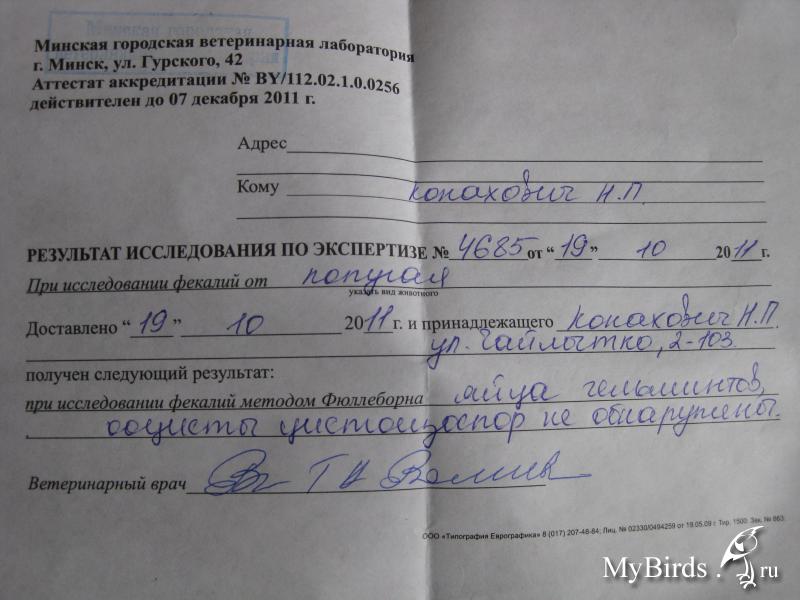 Минская городская
Минская городская ветеринарная лаборатория
г. Минск, ул. Гурского, 42
Аттестат аккредитации № BY/112.02.1.0.0256
действителен до 07 декабря 2011 г.
Адрес
Кому Конахович Н.П.
РЕЗУЛЬТАТ ИССЛЕДОВАНИЯ ПО ЭКСПЕРТИЗЕ № 4685 от “19” 10 2011 г.
При исследовании фекалий от попугая
указать вид животного
Доставлено “19” 10 2011 г. и принадлежащего Конахович Н.П.
ул. 2-103
получен следующий результат:
при исследовании фекалий методом Фюллеборна яйца гельминтов,
ооцисты цистоизоспор не обнаружены.
Ветеринарный врач
ООО «Типография Еврографика» 8 (017) 207-48-84; Лиц. № 02330/0494259 от 19.05.09 г. Тир. 1500. Зак. № 863.
MyBirds.ru